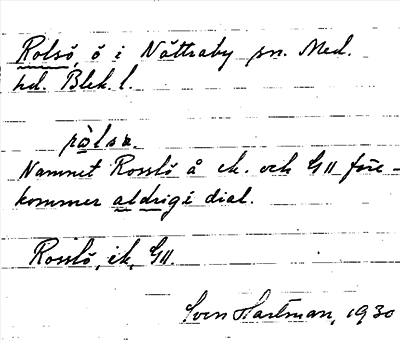 Rolsö, ö i Nättraby sn. Med.
hd. Blek. l.
Namnet Rosslö å ek. och GII före-
kommer aldrig i dial.
Rosslö, ek, GII.
Sven Hartman, 1930